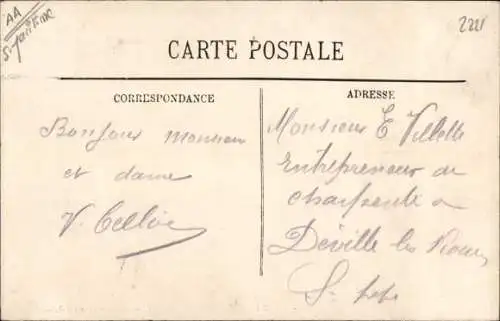 AA
2221
CARTE POSTALE
CORRESPONDANCE
Bonjour monsieur
et dame
V.
ADRESSE
Monsieur E Villette
Entrepreneur de
charpente a
Déville les Rouen
S.